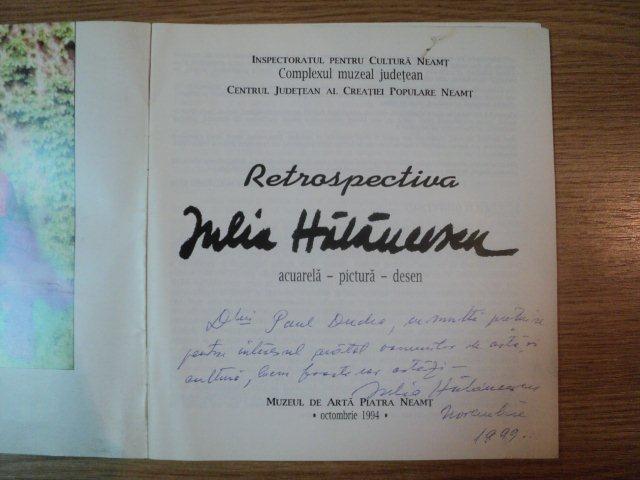 INSPECTORATUL PENTRU CULTURĂ NEAMȚ
Complexul muzeal județean
CENTRUL JUDEȚEAN AL CREAȚIEI POPULARE NEAMȚ
Retrospectiva
Iulia Hălăucescu
acuarelă – pictură – desen
Dlui Paul Dudea, cu multă prețuire
pentru interesul arătat oamenilor de artă și
cultură, lucru foarte rar astăzi –
Iulia Hălăucescu
MUZEUL DE ARTĂ PIATRA NEAMȚ
• octombrie 1994 •
Noembrie
1999.